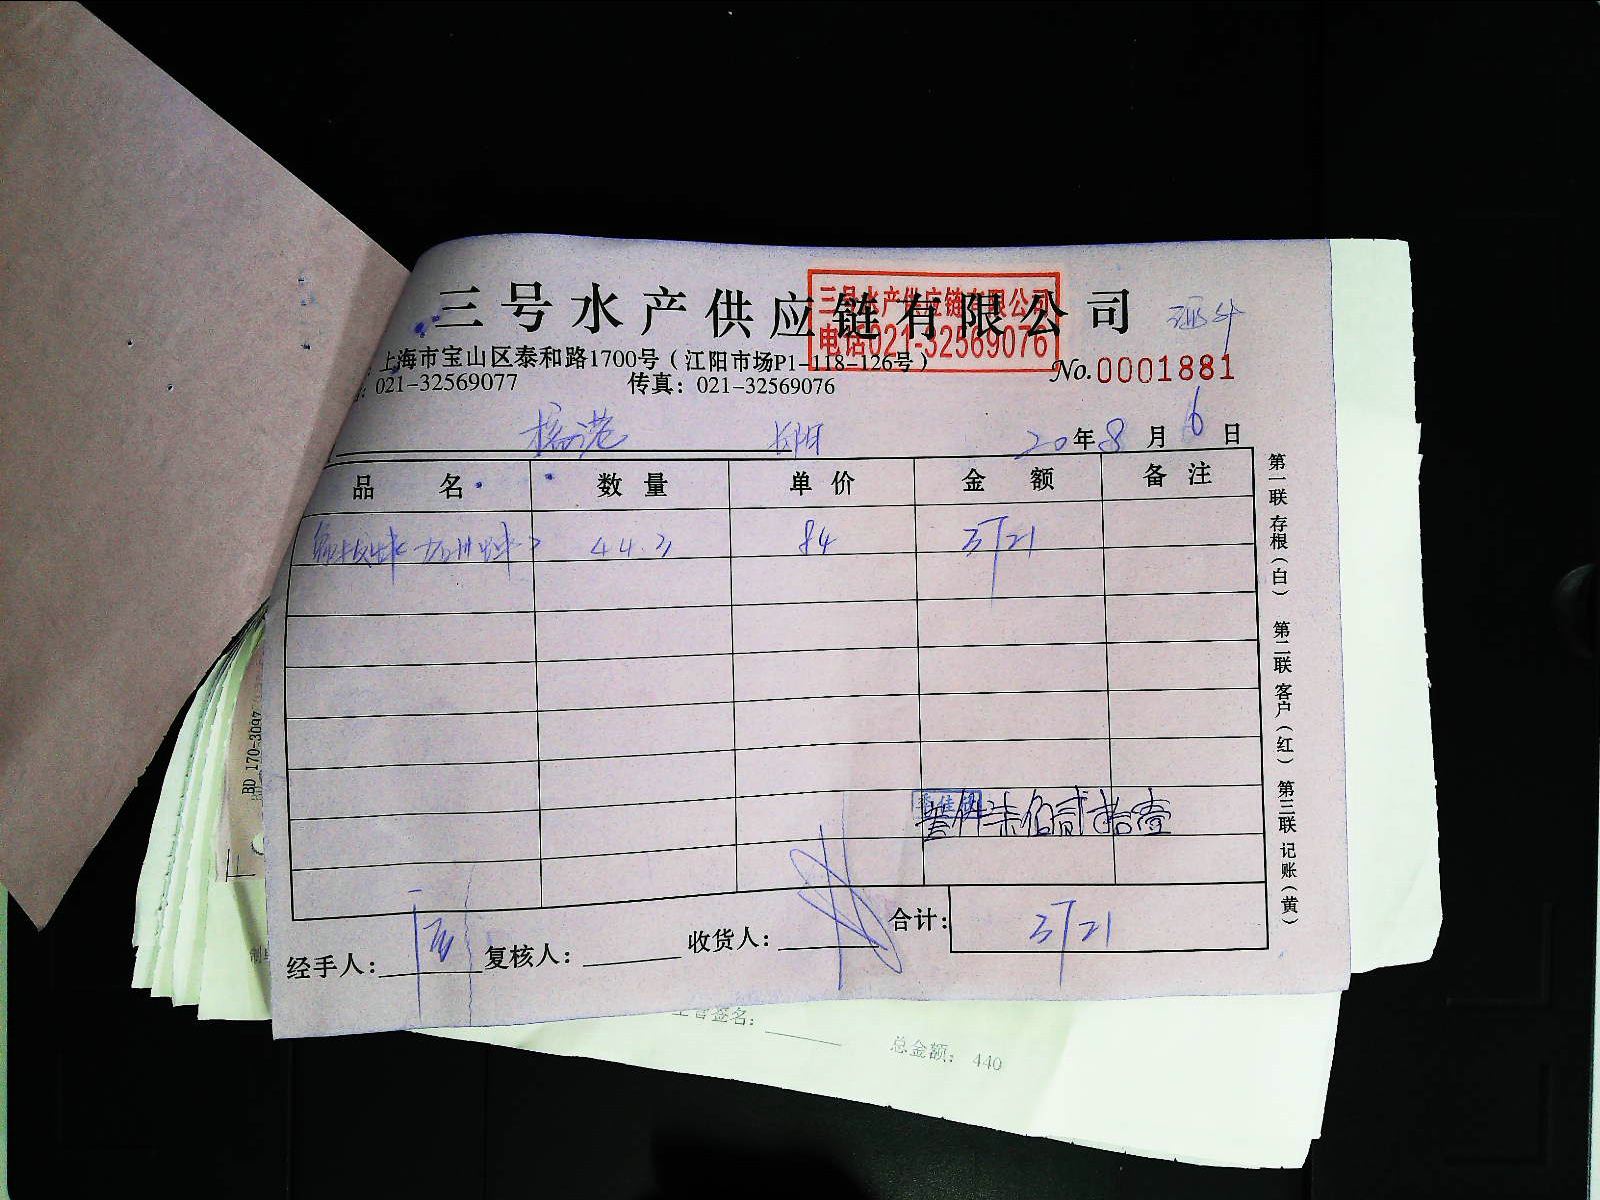 三号水产供应链有限公司
三号水产供应链有限公司
电话021-32569076
上海市宝山区泰和路1700号（江阳市场P1-118-126号）
No.0001881
021-32569077 传真：021-32569076
20年8月6日
品名 数量 单价 金额 备注
44.3 84 3721
叁仟柒佰贰拾壹
合计： 3721
经手人： 复核人： 收货人：
第一联 存根（白） 第二联 客户（红） 第三联 记账（黄）
BD 170-3097
签名：
总金额： 440